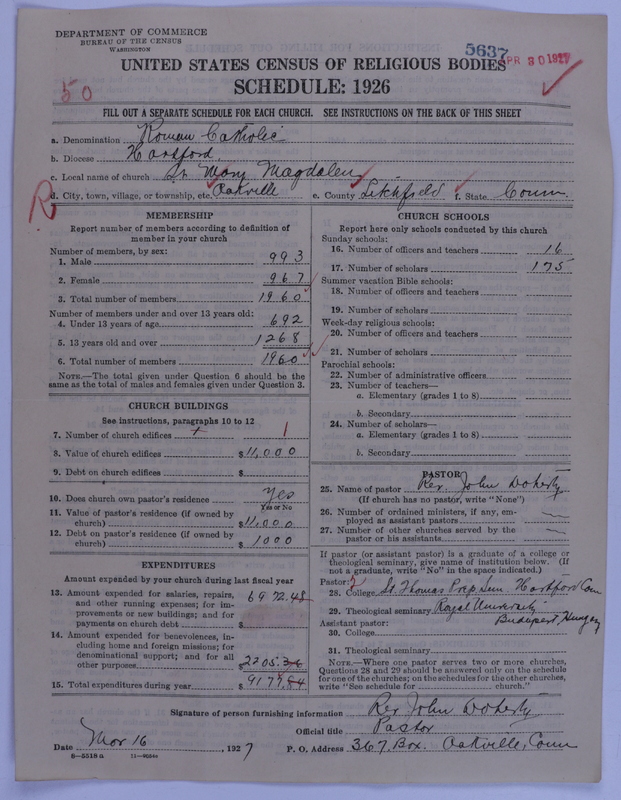 DEPARTMENT OF COMMERCE
BUREAU OF THE CENSUS
WASHINGTON
5637
APR 30 1927
UNITED STATES CENSUS OF RELIGIOUS BODIES
SCHEDULE: 1926
50
FILL OUT A SEPARATE SCHEDULE FOR EACH CHURCH. SEE INSTRUCTIONS ON THE BACK OF THIS SHEET
a. Denomination Roman Catholic
b. Diocese Hartford
c. Local name of church St. Mary Magdalen
d. City, town, village, or township, etc. Oakville e. County Litchfield f. State Conn.
R
MEMBERSHIP
Report number of members according to definition of
member in your church
Number of members, by sex:
1. Male 993
2. Female 967
3. Total number of members 1960
Number of members under and over 13 years old:
4. Under 13 years of age 692
5. 13 years old and over 1268
6. Total number of members 1960
NOTE.—The total given under Question 6 should be
same as the total of males and females given under Question 3.
CHURCH BUILDINGS
See instructions, paragraphs 10 to 12
7. Number of church edifices 1
8. Value of church edifices $11,000
9. Debt on church edifices $
10. Does church own pastor's residence yes
Yes or No
11. Value of pastor's residence (if owned by
church) $11,000
12. Debt on pastor's residence (if owned by
church) $1000
EXPENDITURES
Amount expended by your church during last fiscal year
13. Amount expended for salaries, repairs,
and other running expenses; for im-
provements or new buildings; and for
payments on church debt $ 6972.48
14. Amount expended for benevolences, in-
cluding home and foreign missions; for
denominational support; and for all
other purposes $2205.36
15. Total expenditures during year $
CHURCH SCHOOLS
Report here only schools conducted by this church
Sunday schools:
16. Number of officers and teachers 16
17. Number of scholars 175
Summer vacation Bible schools:
18. Number of officers and teachers
19. Number of scholars
Week-day religious schools:
20. Number of officers and teachers
21. Number of scholars
Parochial schools:
22. Number of administrative officers
23. Number of teachers—
a. Elementary (grades 1 to 8)
b. Secondary
24. Number of scholars—
a. Elementary (grades 1 to 8)
b. Secondary
PASTOR
25. Name of pastor Rev. John Doherty
(If church has no pastor, write "None")
26. Number of ordained ministers, if any, em-
ployed as assistant pastors
27. Number of other churches served by the
pastor or his assistants
If pastor (or assistant pastor) is a graduate of a college or
theological seminary, give name of institution below. (If
not a graduate, write "No" in the space indicated.)
Pastor:
28. College St. Thomas Prep. Sem. Hartford Conn
29. Theological seminary Royal University
Budapest, Hungary
Assistant pastor:
30. College
31. Theological seminary
NOTE.—Where one pastor serves two or more churches,
Questions 28 and 29 should be answered only on the schedule
for one of the churches; on the schedules for the other churches,
write "See schedule for church."
Signature of person furnishing information Rev John Doherty
Official title Pastor
Date Mar 16, 1927 P. O. Address 367 Box. Oakville, Conn
8—5518a